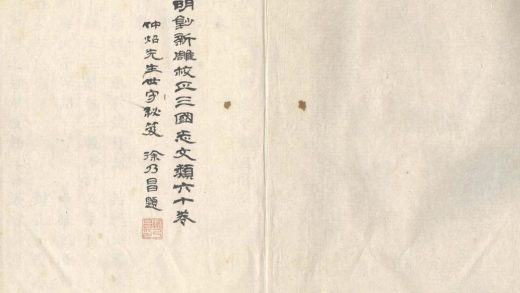 明鈔新雕校正三國志文類六十卷
仲炤先生世守秘笈 徐乃昌題